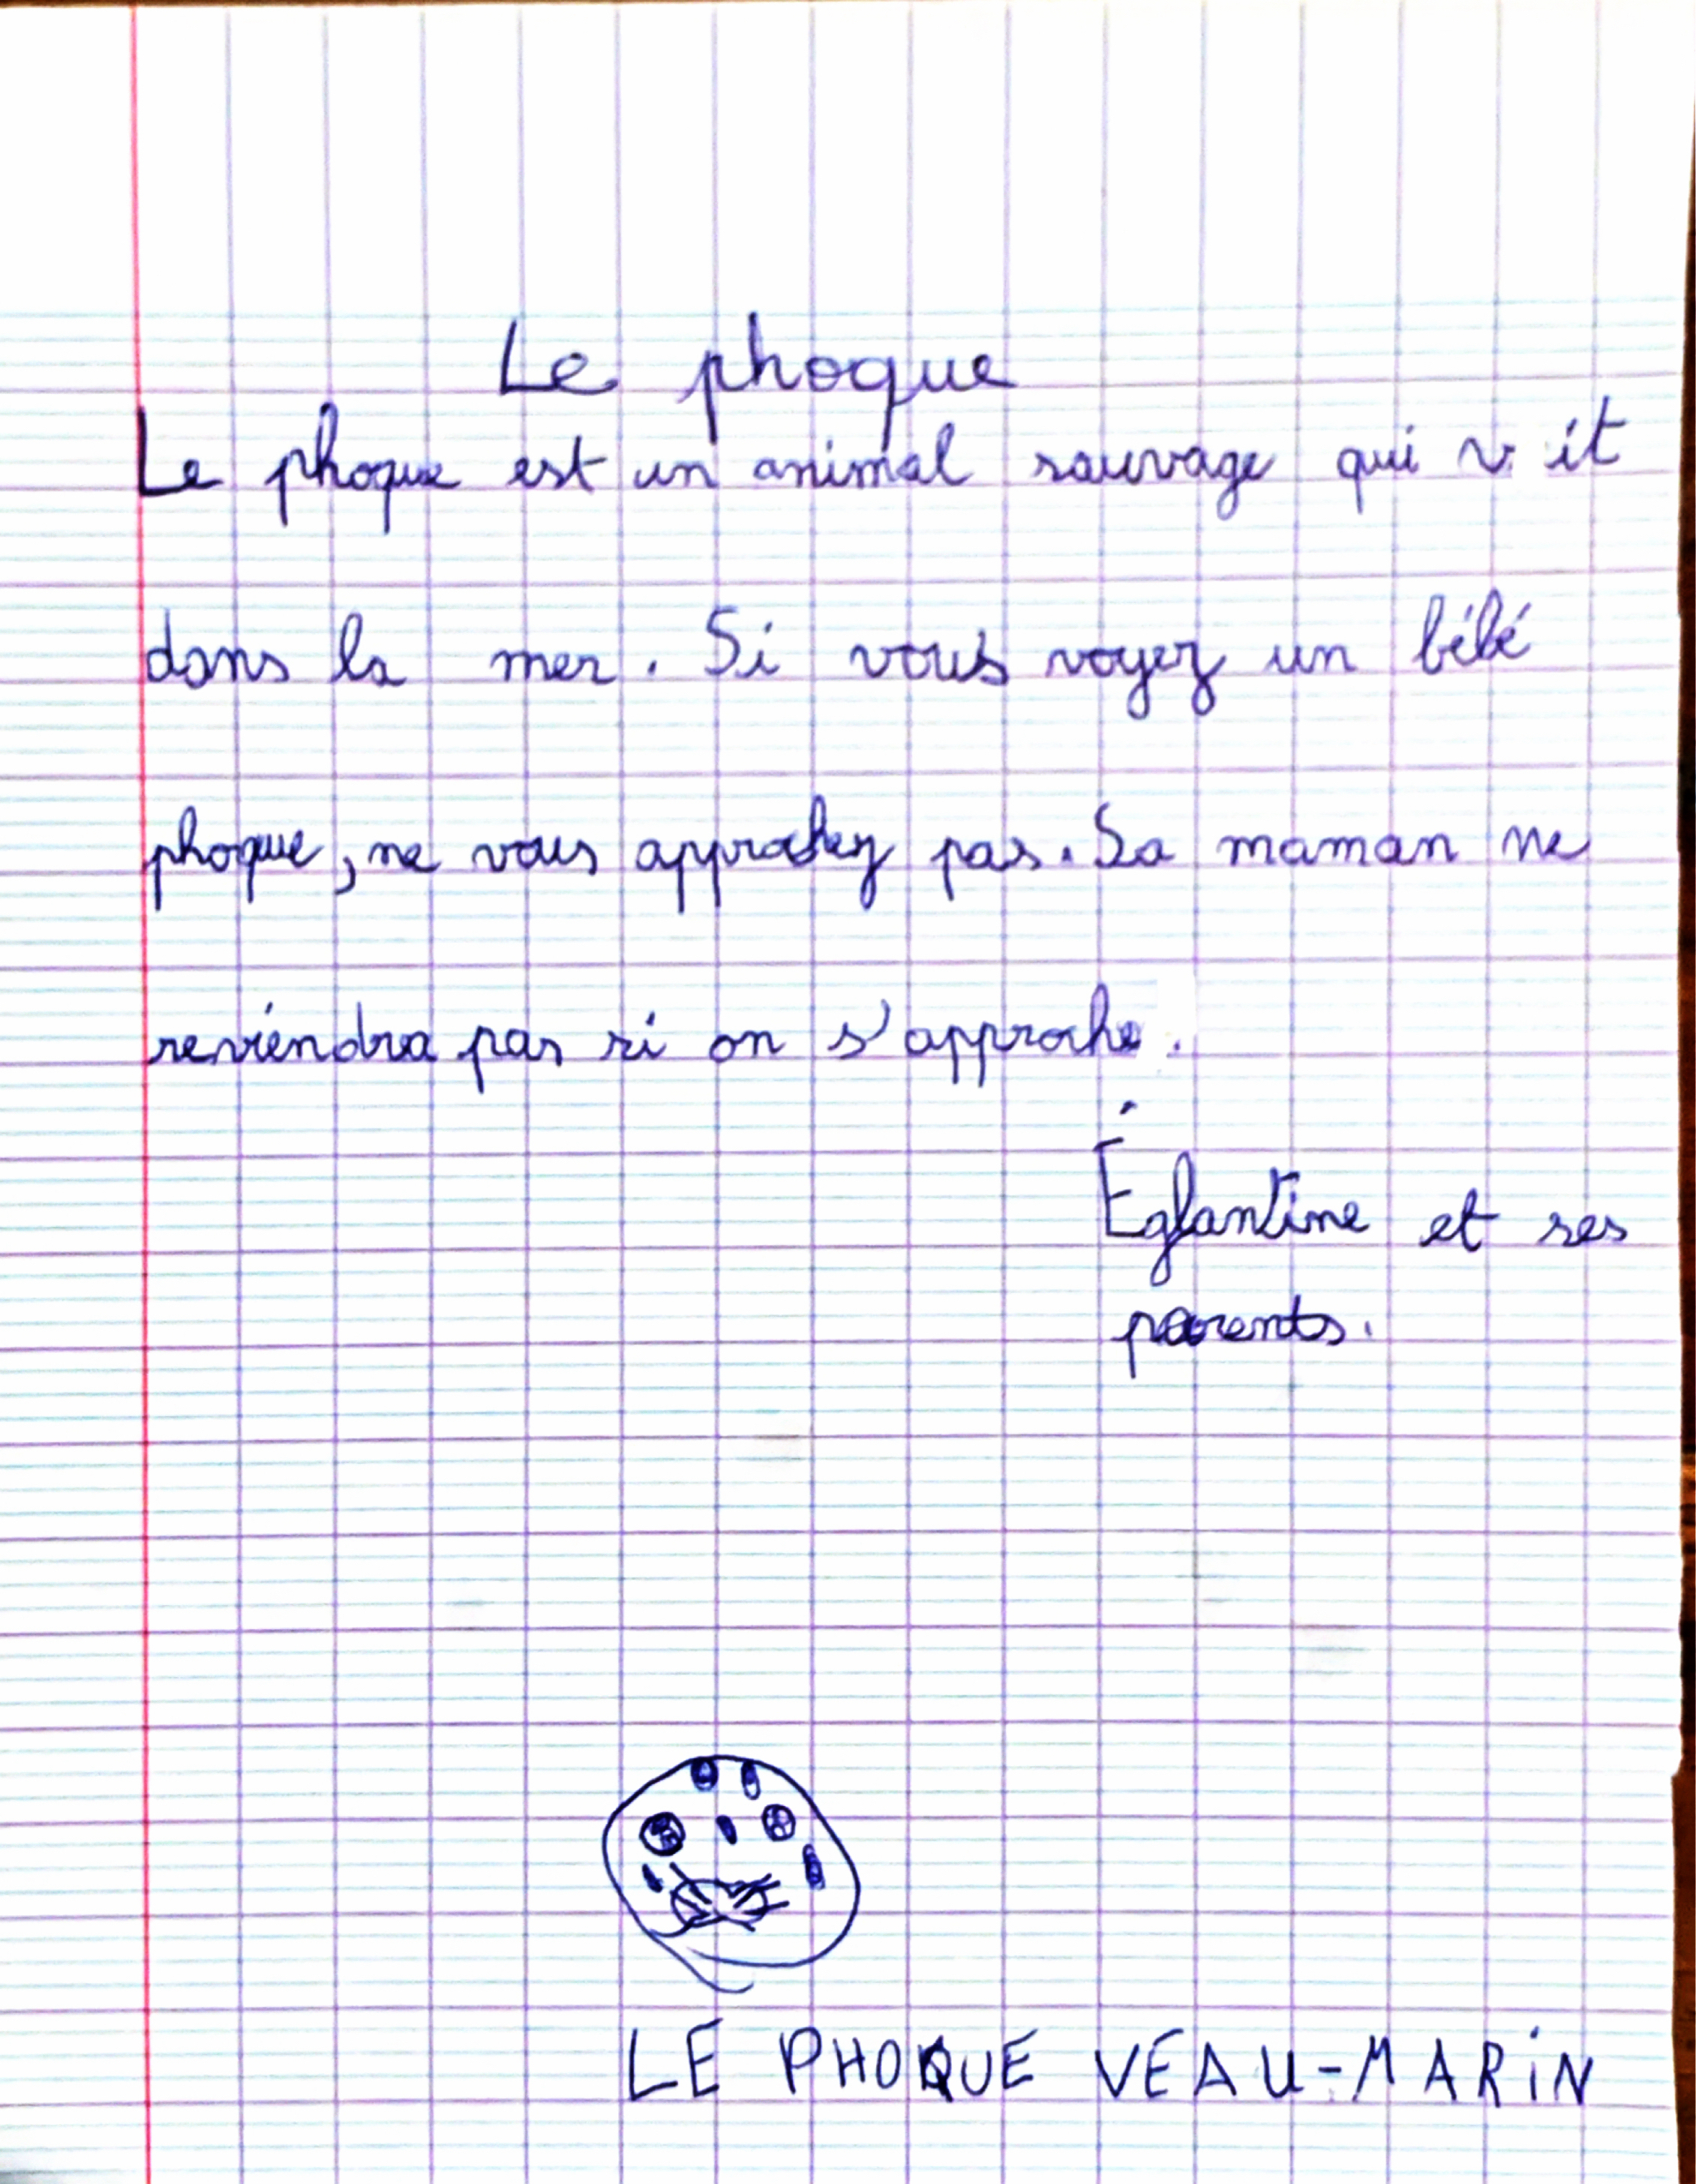 Le phoque
Le phoque est un animal sauvage qui vit
dans la mer. Si vous voyez un bébé
phoque, ne vous approchez pas. Sa maman ne
reviendra pas si on s'approche.
Églantine et ses
parents.
LE PHOQUE VEAU-MARiN